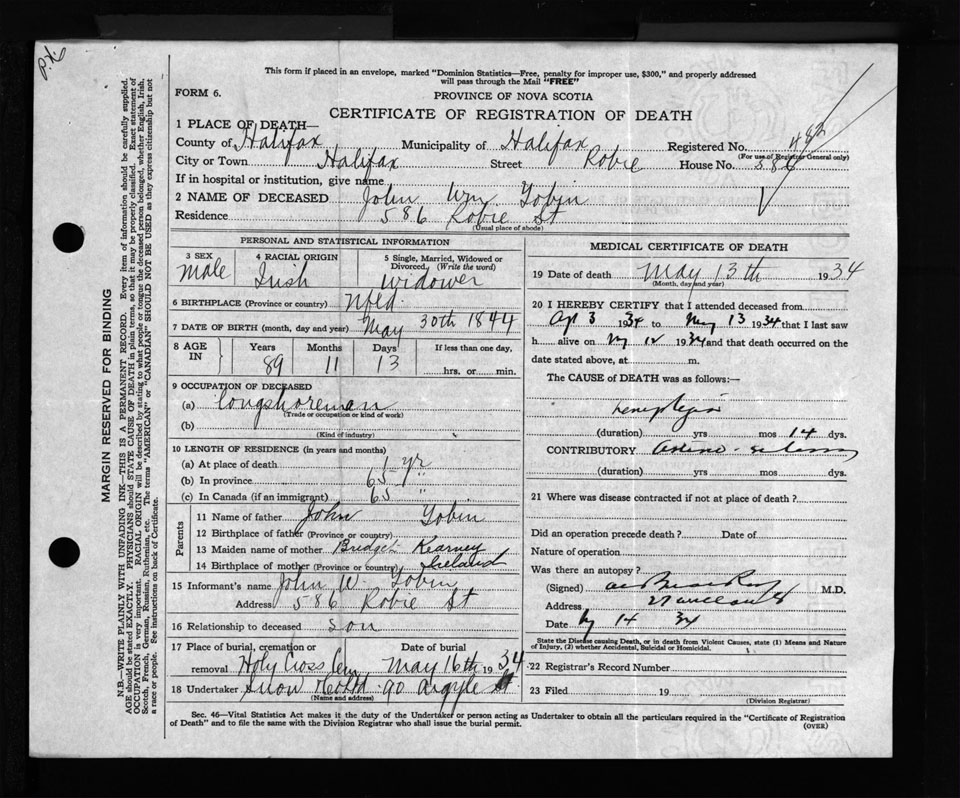 This form if placed in an envelope, marked "Dominion Statistics—Free, penalty for improper use, $300," and properly addressed
will pass through the Mail "FREE"
FORM 6.
PROVINCE OF NOVA SCOTIA
CERTIFICATE OF REGISTRATION OF DEATH
1 PLACE OF DEATH—
County of Halifax Municipality of Halifax Registered No. 482
(For use of Registrar General only)
City or Town Halifax Street Robie House No. 586
If in hospital or institution, give name
2 NAME OF DECEASED John Wm Tobin
Residence 586 Robie St
(Usual place of abode)
PERSONAL AND STATISTICAL INFORMATION
3 SEX Male
4 RACIAL ORIGIN Irish
5 Single, Married, Widowed or Divorced. (Write the word) Widower
6 BIRTHPLACE (Province or country) Nfld.
7 DATE OF BIRTH (month, day and year) May 30th 1844
8 AGE IN Years 89 Months 11 Days 13 If less than one day, hrs. or min.
9 OCCUPATION OF DECEASED
(a) longshoreman
(Trade or occupation or kind of work)
(b)
(Kind of industry)
10 LENGTH OF RESIDENCE (in years and months)
(a) At place of death 1 yr
(b) In province 65 "
(c) In Canada (if an immigrant) 65 "
Parents
11 Name of father John Tobin
12 Birthplace of father (Province or country)
13 Maiden name of mother Bridget Kearney
14 Birthplace of mother (Province or country) Ireland
15 Informant's name John W. Tobin
Address 586 Robie St
16 Relationship to deceased son
17 Place of burial, cremation or removal Holy Cross Cem Date of burial May 16th 1934
18 Undertaker Snow 90 Argyle St
(Name and address)
MEDICAL CERTIFICATE OF DEATH
19 Date of death May 13th 1934
(Month, day and year)
20 I HEREBY CERTIFY that I attended deceased from
Apl 3 1934 to May 13 1934 that I last saw
h alive on My 12 1934 and that death occurred on the
date stated above, at m.
The CAUSE of DEATH was as follows:—
(duration) yrs mos 14 dys.
CONTRIBUTORY
(duration) yrs mos dys.
21 Where was disease contracted if not at place of death?
Did an operation precede death? Date of
Nature of operation
Was there an autopsy?
(Signed) M.D.
Address
Date My 14 34
State the Disease causing Death, or in death from Violent Causes, state (1) Means and Nature
of Injury, (2) whether Accidental, Suicidal or Homicidal.
22 Registrar's Record Number
23 Filed 19
(Division Registrar)
Sec. 46—Vital Statistics Act makes it the duty of the Undertaker or person acting as Undertaker to obtain all the particulars required in the "Certificate of Registration
of Death" and to file the same with the Division Registrar who shall issue the burial permit.
(OVER)
MARGIN RESERVED FOR BINDING
N.B.—WRITE PLAINLY WITH UNFADING INK—THIS IS A PERMANENT RECORD. Every item of information should be carefully supplied.
AGE should be stated EXACTLY. PHYSICIANS should STATE CAUSE OF DEATH in plain terms, so that it may be properly classified. Exact statement of
OCCUPATION is very important. RACIAL ORIGIN will be described by stating to what people or tongue the deceased person belonged, whether English, Irish,
Scotch, French, German, Russian, Ruthenian, etc. The terms "AMERICAN" or "CANADIAN" SHOULD NOT BE USED as they express citizenship but not
a race or people. See instructions on back of Certificate.